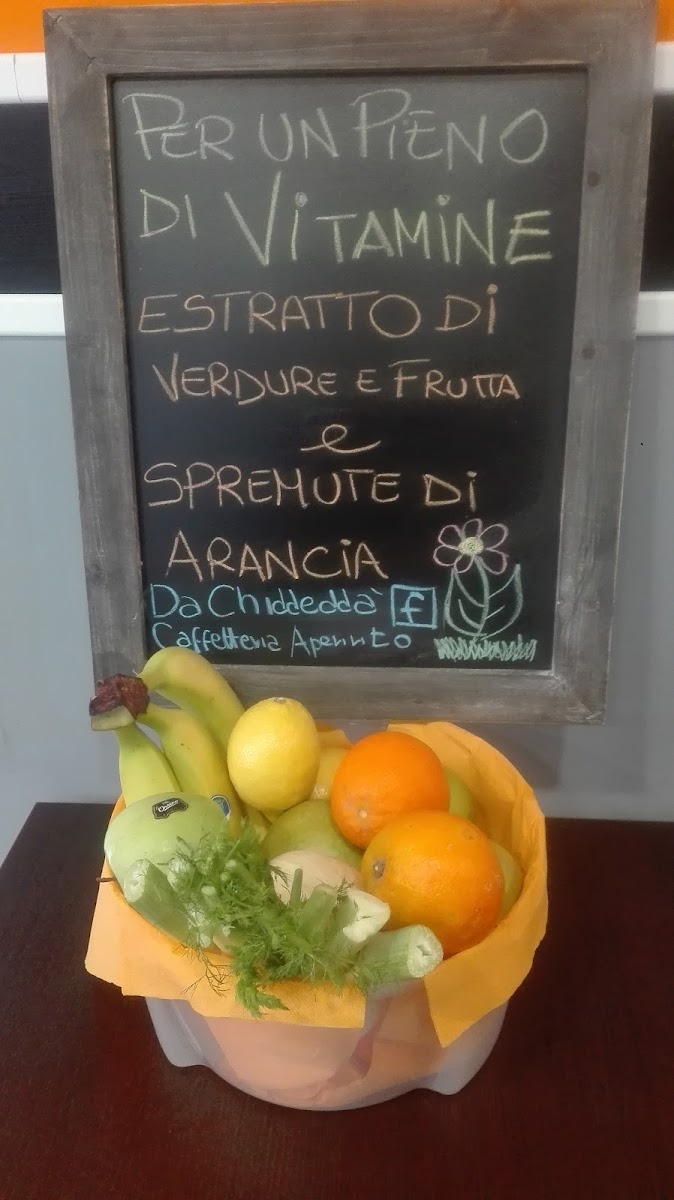 PER UN PIENO
DI ViTAMiNE
ESTRATTO Di
VERDURE E FRUTTA
e
SPREMUTE Di
ARANCiA
Da Chiddeddà f
Caffetteria Aperitivo